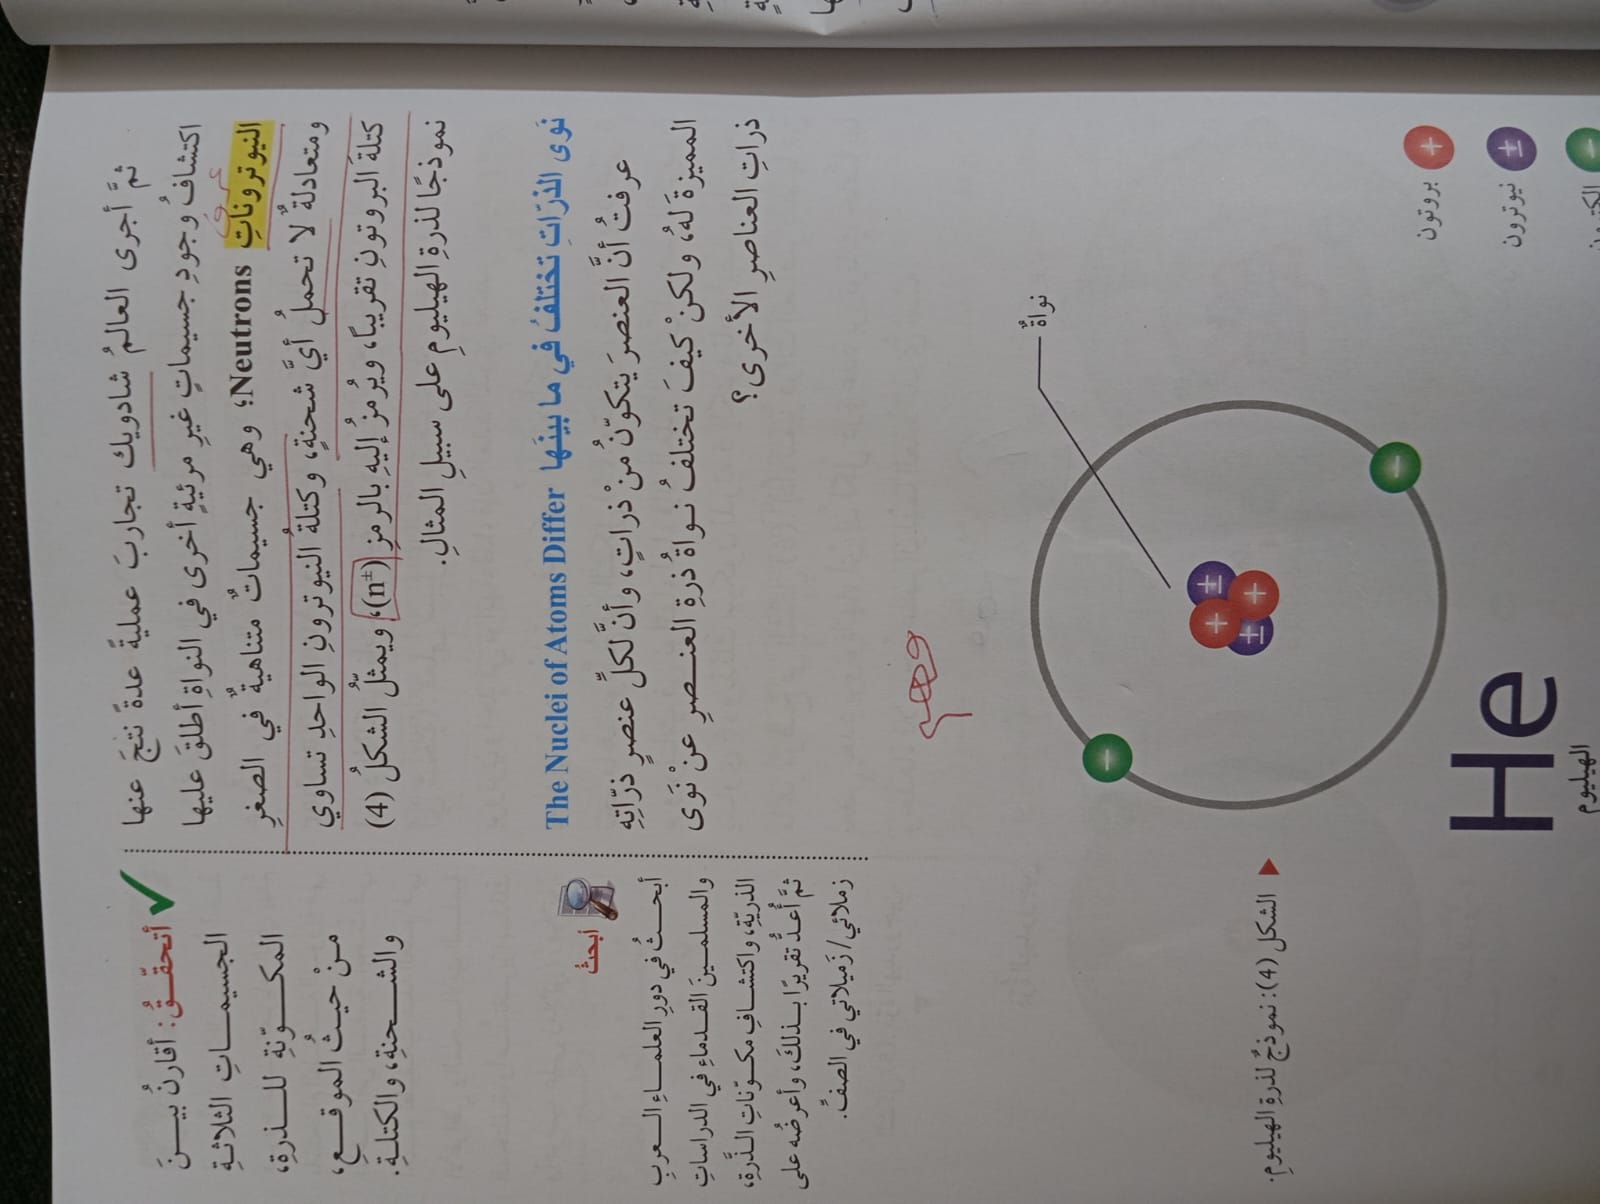 ثمَّ أجرى العالمُ شادويك تجاربَ عمليةً عدةً نتجَ عنها
اكتشافُ وجودِ جسيماتٍ غيرِ مرئيةٍ أخرى في النواةِ أطلقَ عليها
النيوتروناتِ Neutrons؛ وهي جسيماتٌ متناهيةٌ في الصغرِ
ومتعادلةٌ لا تحملُ أيَّ شحنةٍ، وكتلةُ النيوترونِ الواحدِ تساوي
كتلةَ البروتونِ تقريبًا، ويُرمزُ إليهِ بالرمزِ (n±)، ويمثّلُ الشكلُ (4)
نموذجًا لذرةِ الهيليومِ على سبيلِ المثالِ.
نَوى الذرّاتِ تختلفُ في ما بينَها The Nuclei of Atoms Differ
عرفتُ أنَّ العنصرَ يتكوّنُ منْ ذراتٍ، وأنَّ لكلِّ عنصرٍ ذرّاتِهِ
المميزةَ لهُ، ولكنْ كيفَ تختلفُ نواةُ ذرةِ العنصرِ عنْ نَوى
ذراتِ العناصرِ الأخرى؟
أتحقّقُ: أقارنُ بينَ
الجسيماتِ الثلاثةِ
المكوّنةِ للذرةِ،
منْ حيثُ الموقعِ،
والشحنةِ، والكتلةِ.
أبحثُ
أبحثُ في دورِ العلماءِ العربِ
والمسلمينَ القدماءِ في الدراساتِ
الذريّةِ، واكتشافِ مكوّناتِ الذّرةِ،
ثمَّ أُعدُّ تقريرًا بذلكَ، وأعرضُه على
زملائي/ زميلاتي في الصفِّ.
نواةٌ
+
+
±
±
-
-
+ بروتون
± نيوترون
- الكترون
He
الهيليوم
الشكل (4): نموذجٌ لذرةِ الهيليومِ.